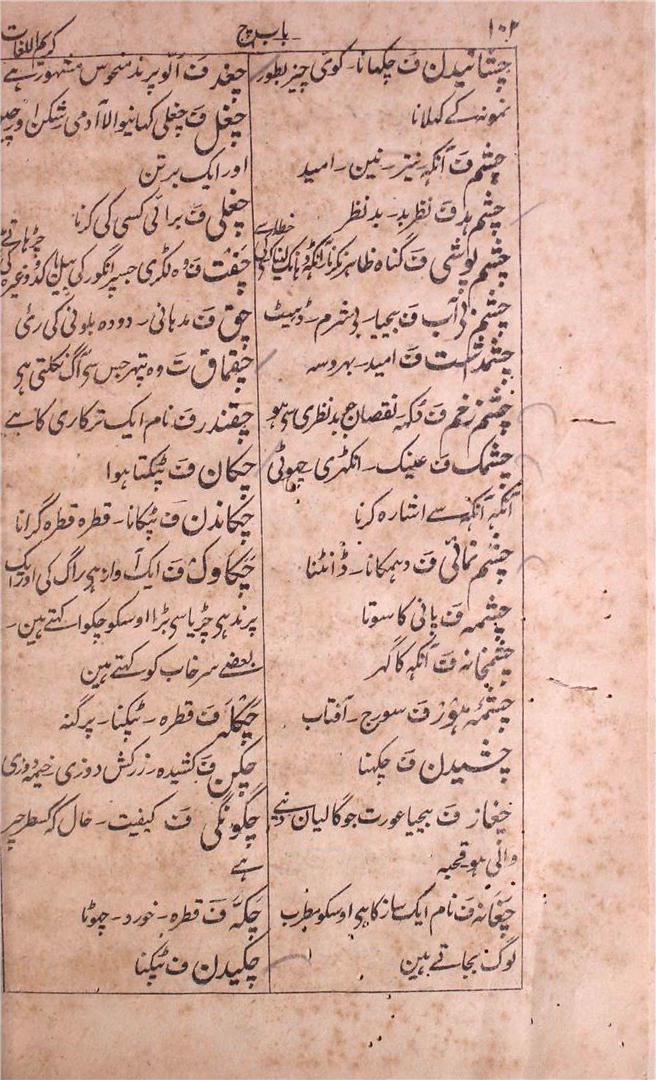 ۱۰۲
باب چ
کریم اللغات
چشانیدن ف چکہانا۔ کوی چیز بطور
نمونہ کے کہلانا
چشم ف آنکہہ نیز۔ نین۔ امید
چشم بد ف نظر بد۔ بد نظر
چشم پوشی ف گناہ ظاہر نکرنا آنکہہ ڈہانک لینا کسی کی
خطا سے
چشم بی آب ف بیحیا۔ بی شرم۔ ڈہیٹ
چشمداشت ف امید۔ بہروسہ
چشم زخم ف دکہہ نقصان جو بد نظری سی ہو
چشمک ف عینک۔ انکہڑی چہوٹی
آنکہہ آنکہہ سے اشارہ کرنا
چشم نمائی ف دہمکانا۔ ڈانٹنا
چشمہ ف پانی کا سوتا
چشمخانہ ف آنکہہ کا گہر
چشمۂ ہور ف سورج۔ آفتاب
چشیدن ف چکہنا
چغاز ف بیحیا عورت جو گالیان دینے
والی ہو قحبہ
چغانہ ف نام ایک ساز کا ہی اوسکو مطرب
لوگ بجاتے ہین
چغد ف اُلّو پرند منحوس مشہور ہے
چغل ف چغلی کہانیوالا آدمی شکن اور چین
اور ایک برتن
چغلی ف برائی کسی کی کرنا
چڑہاتے
چفت ف وہ لکڑی جسپر انگور کی بیل یا کدو وغیرہ کی
چق ف مدہانی۔ دودہ بلونی کی رئی
چقماق ت وہ پتہر جس سی آگ نکلتی ہی
چقندر ف نام ایک ترکاری کا ہے
چکان ف ٹپکتا ہوا
چکاندن ف ٹپکانا۔ قطرہ قطرہ گرانا
چکاوک ف ایک آواز ہی راگ کی اور ایک
پرند ہی چڑیا سی بڑا اوسکو چکوا کہتے ہین۔
بعضے سرخاب کو کہتے ہین
چکلہ ف قطرہ۔ ٹپکنا۔ پرگنہ
چکن ف کشیدہ۔ زرکش دوزی۔ خیمہ دوزی
چگونگی ف کیفیت۔ حال کہ کسطرحپر
ہے
چکہ ف قطرہ۔ خورد۔ چہوٹا
چکیدن ف ٹپکنا